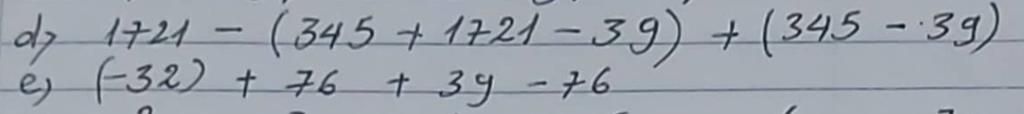 d, 1721 - (345 + 1721 - 39) + (345 - 39)
e, (-32) + 76 + 39 - 76